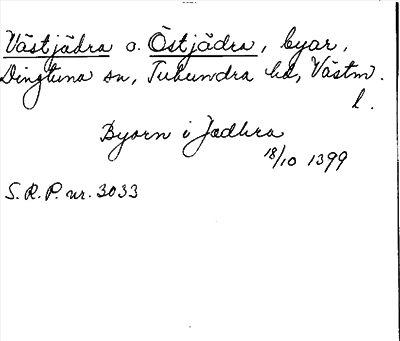 Västjädra o. Östjädra, byar,
Dingtuna sn, Tuhundra hd, Västm.
l.
Byorn i Jædhra
18/10 1399
S.R.P. nr. 3033